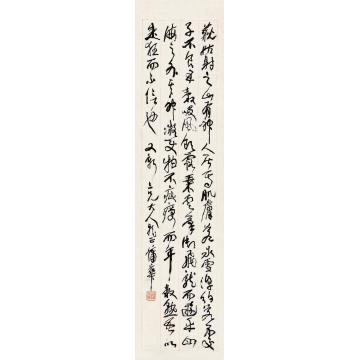 藐姑射之山有神人居焉肌膚若冰雪淖約若處
子不食五穀吸風飲露乘雲氣御飛龍而遊乎四
海之外其神凝使物不疵癘而年穀熟吾以
是狂而不信也 又新仁兄大人雅正蒲華